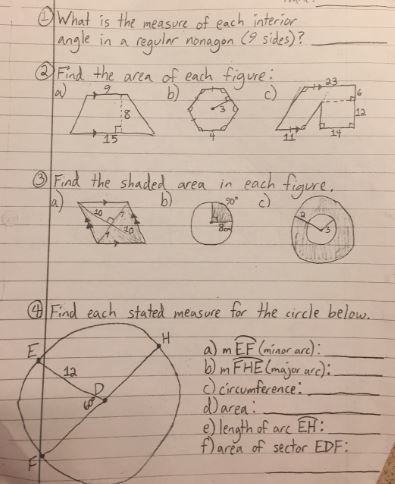 ① What is the measure of each interior
angle in a regular nonagon (9 sides)?
② Find the area of each figure:
a) b) c)
9
8
15
3
4
23
6
12
14
11
③ Find the shaded area in each figure.
a) b) c)
10
7
7
10
90°
8cm
2
3
④ Find each stated measure for the circle below.
E
H
12
D
60°
F
a) m EF (minor arc):
b) m FHE (major arc):
c) circumference:
d) area:
e) length of arc EH:
f) area of sector EDF: